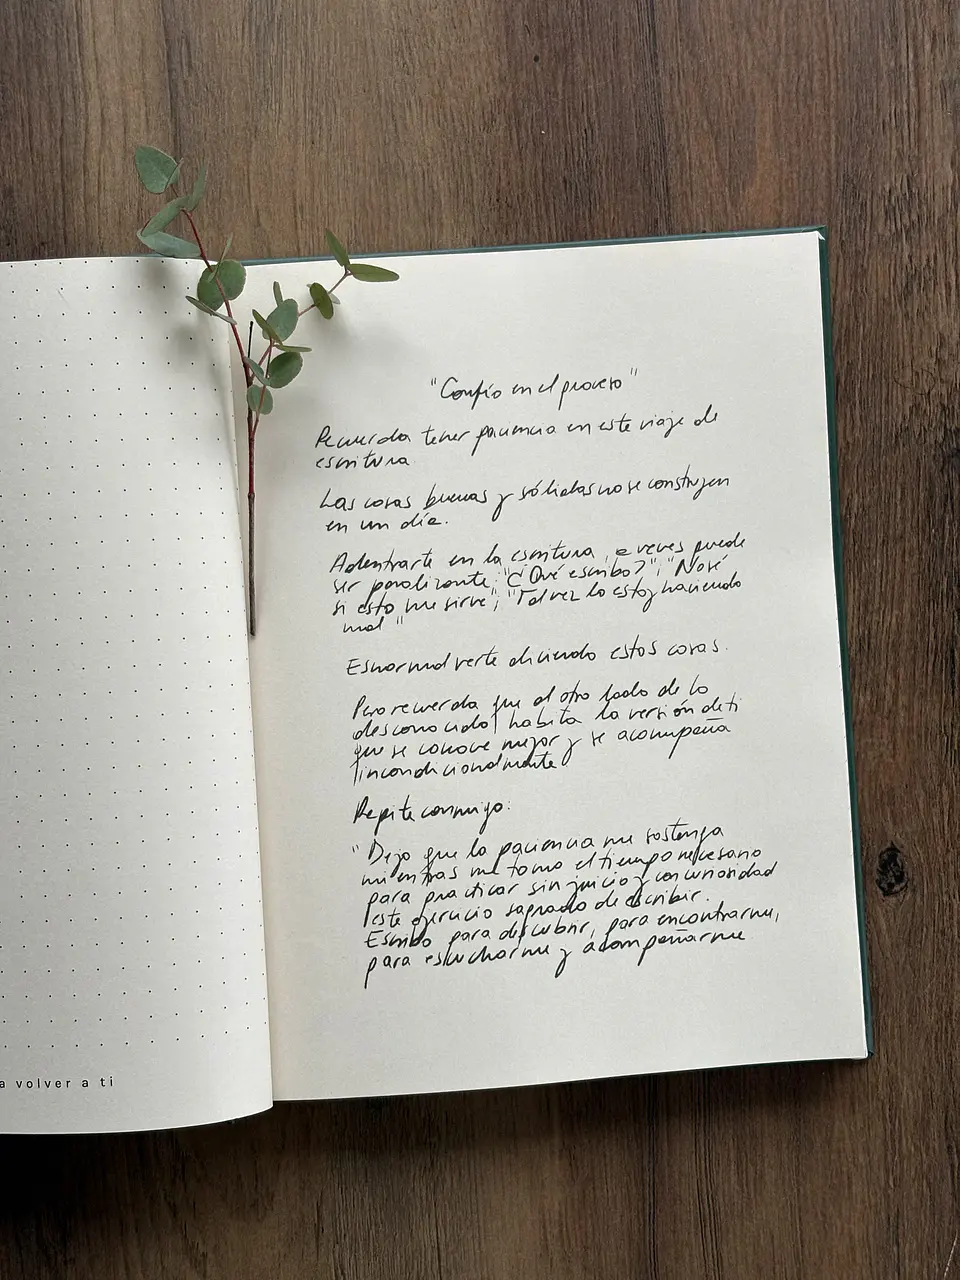 "Confío en el proceso"
Recuerda tener paciencia en este viaje de
escritura
Las cosas buenas y sólidas no se construyen
en un día.
Adentrarte en la escritura, a veces puede
ser paralizante: "¿Qué escribo?", "No sé
si esto me sirve", "Tal vez lo estoy haciendo
mal"
Es normal verte diciendo estas cosas.
Pero recuerda que al otro lado de lo
desconocido, habita la versión de ti
que se conoce mejor y se acompaña
incondicionalmente
Repite conmigo:
"Dejo que la paciencia me sostenga
mientras me tomo el tiempo necesario
para practicar sin juicio y con curiosidad
este ejercicio sagrado de escribir.
Escribo para descubrir, para encontrarme,
para escucharme y acompañarme
a volver a ti